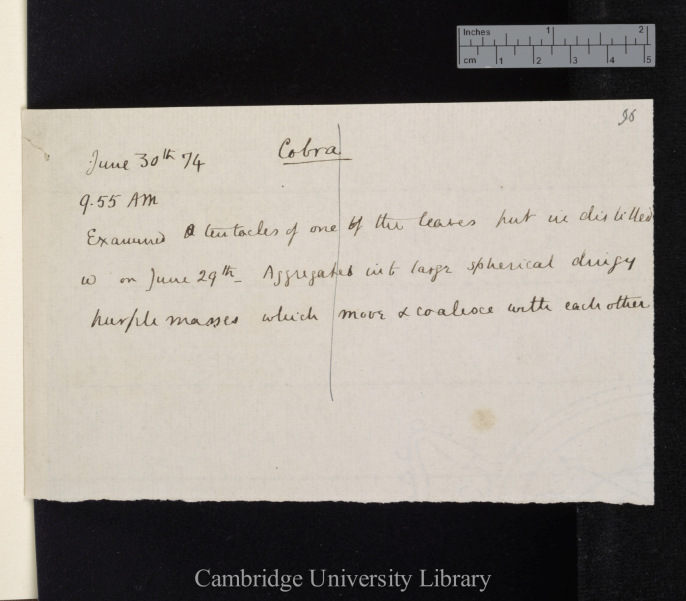 Inches 1 2
cm 1 2 3 4 5
96
June 30th 74 Cobra
9.55 AM
Examined tentacles of one of the leaves put in distilled
w on June 29th - Aggregated into large spherical dingy
purple masses which move & coalesce with each other
Cambridge University Library